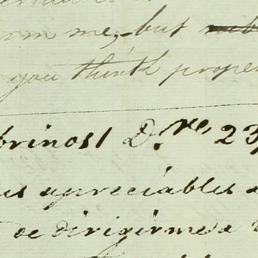 from me, but
you think proper
brinos1 D.re 23
us apreciables
de dirigirme a